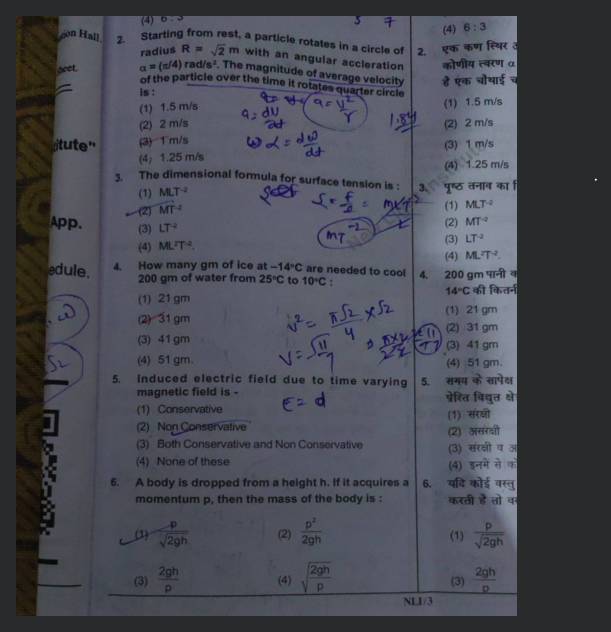 (4) 6 : 3
5 7
tion Hall.
2. Starting from rest, a particle rotates in a circle of
radius R = √2 m with an angular accleration
α = (π/4) rad/s². The magnitude of average velocity
of the particle over the time it rotates quarter circle
is :
(1) 1.5 m/s
(2) 2 m/s
(3) 1 m/s
(4) 1.25 m/s
a = v²/r
a = dv/dt
α = dω/dt
titute"
3. The dimensional formula for surface tension is :
(1) MLT⁻²
(2) MT⁻²
(3) LT⁻²
(4) ML²T⁻².
MT⁻²
App.
edule.
4. How many gm of ice at –14°C are needed to cool
200 gm of water from 25°C to 10°C :
(1) 21 gm
(2) 31 gm
(3) 41 gm
(4) 51 gm.
v² = π√2/4 × √2
5. Induced electric field due to time varying
magnetic field is -
(1) Conservative
(2) Non Conservative
(3) Both Conservative and Non Conservative
(4) None of these
E = d
6. A body is dropped from a height h. If it acquires a
momentum p, then the mass of the body is :
(1) p/√2gh
(2) p²/2gh
(3) 2gh/p
(4) √(2gh/p)
NLI/3
(4) 6 : 3
2. एक कण स्थिर
कोणीय त्वरण α
है एक चौथाई
(1) 1.5 m/s
(2) 2 m/s
(3) 1 m/s
(4) 1.25 m/s
3. पृष्ठ तनाव का
(1) MLT⁻²
(2) MT⁻²
(3) LT⁻²
(4) ML²T⁻².
4. 200 gm पानी
14°C की
(1) 21 gm
(2) 31 gm
(3) 41 gm
(4) 51 gm.
5. समय के सापेक्ष
प्रेरित विद्युत
(1) संरक्षी
(2) असंरक्षी
(3) संरक्षी व
(4) इनमे से
6. यदि कोई वस्तु
करती है तो
(1) p/√2gh
(3) 2gh/p